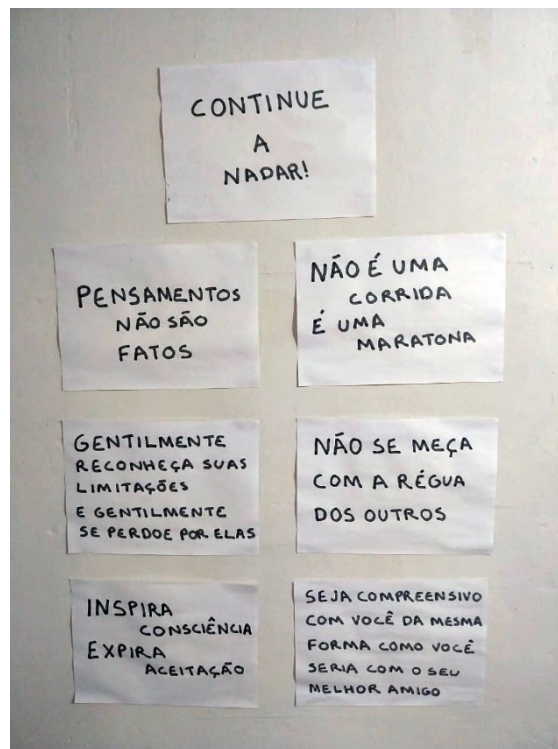 CONTINUE
A
NADAR!
PENSAMENTOS
NÃO SÃO
FATOS
NÃO É UMA
CORRIDA
É UMA
MARATONA
GENTILMENTE
RECONHEÇA SUAS
LIMITAÇÕES
E GENTILMENTE
SE PERDOE POR ELAS
NÃO SE MEÇA
COM A RÉGUA
DOS OUTROS
INSPIRA
CONSCIÊNCIA
EXPIRA
ACEITAÇÃO
SEJA COMPREENSIVO
COM VOCÊ DA MESMA
FORMA COMO VOCÊ
SERIA COM O SEU
MELHOR AMIGO